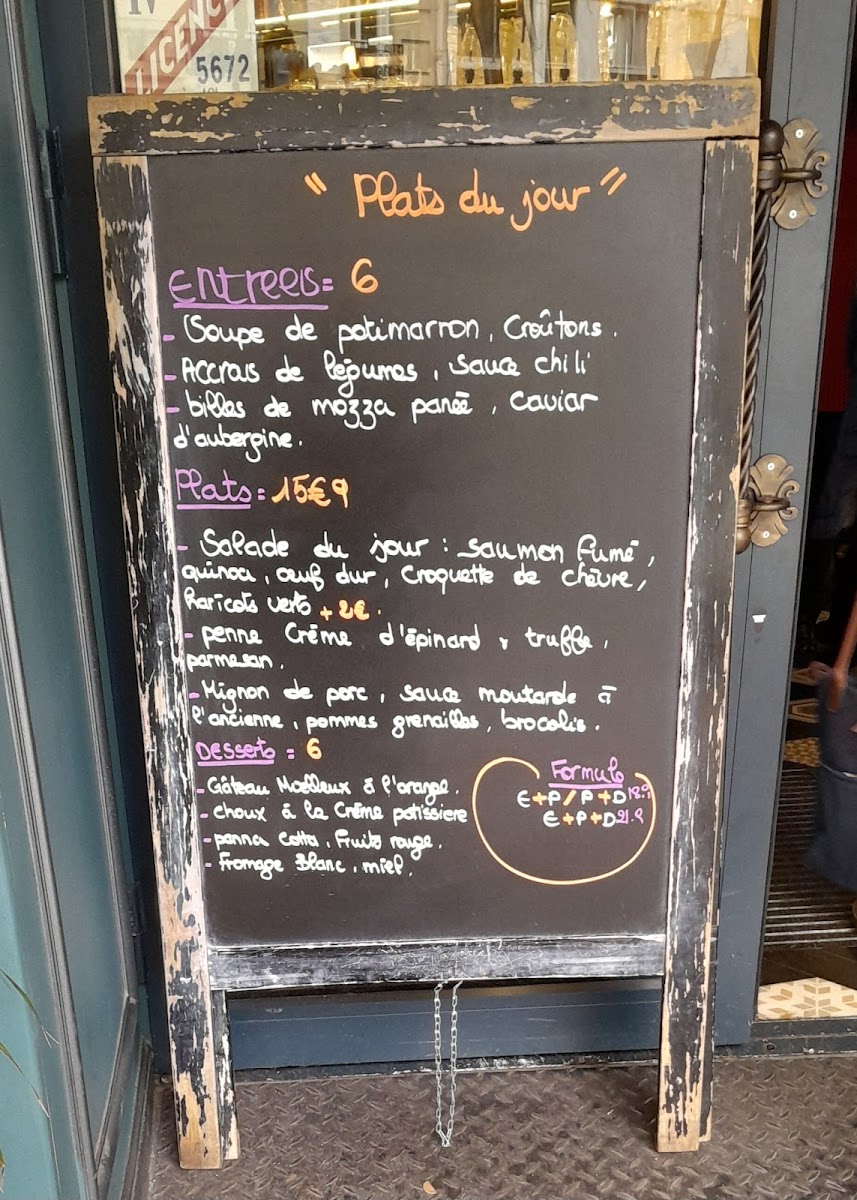 IV
LICENC
5672
" Plats du jour "
Entrees = 6
- Soupe de potimarron, Croûtons.
- Accras de légumes, sauce chili
- billes de mozza panée, caviar
d'aubergine.
Plats = 15€9
- Salade du jour : saumon fumé,
quinoa, œuf dur, croquette de chèvre,
haricots verts + 2€.
- penne Crème d'épinard & truffe,
parmesan.
- Mignon de porc, sauce moutarde à
l'ancienne, pommes grenailles, brocolis.
Desserts = 6
- Gâteau Moelleux à l'orange.
- choux à la Crème patissiere
- panna Cotta, Fruits rouge.
- Fromage Blanc, miel.
Formule
E+P / P+D 18.9
E+P+D 21.9